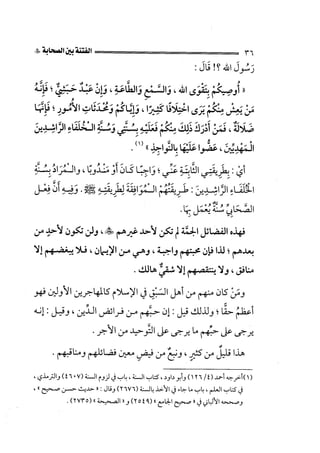 ٣٦ الفتنة بين الصحابة
رَسُولَ الله ؟! قَالَ :
« أُوصِيكُمْ بِتَقْوَى الله ، وَالسَّمْعِ وَالطَّاعَةِ ، وَإِنْ عَبْدٌ حَبَشِيٌّ ؛ فَإِنَّهُ
مَنْ يَعِشْ مِنْكُمْ يَرَى اخْتِلَافًا كَثِيرًا ، وَإِيَّاكُمْ وَمُحْدَثَاتِ الْأُمُورِ ؛ فَإِنَّهَا
ضَلَالَةٌ ، فَمَنْ أَدْرَكَ ذَلِكَ مِنْكُمْ فَعَلَيْهِ بِسُنَّتِي وَسُنَّةِ الْخُلَفَاءِ الرَّاشِدِينَ
الْمَهْدِيِّينَ ، عَضُّوا عَلَيْهَا بِالنَّوَاجِذِ »(١).
أي : بطريقتي الثابتة عني ؛ واجبًا كان أو مندوبًا ، والمراد بسنة
الخلفاء الراشدين : طريقتهم الموافقة لطريقته ﷺ . وفيه أن فعل
الصحابي سنة يُعمل بها.
فهذه الفضائل الجمَّة لم تكن لأحد غيرهم ، ولن تكون لأحد من
بعدهم ؛ لذا فإن محبتهم واجبة ، وهي من الإيمان ، فلا يبغضهم إلا
منافق ، ولا ينتقصهم إلا شقيٌّ هالك .
ومَنْ كان منهم من أهل السبق في الإسلام كالمهاجرين الأولين فهو
أعظم حقًّا ؛ ولذلك قيل : إن حبهم من فرائض الدين ، وقيل : إنه
يرجى على حبهم ما يرجى على التوحيد من الأجر .
هذا قليلٌ من كثير ، ونبعٌ من فيض معين فضائلهم ومناقبهم .
(١) أخرجه أحمد (٤/ ١٢٦) وأبو داود ، كتاب السنة ، باب في لزوم السنة (٤٦٠٧) والترمذي ،
في كتاب العلم ، باب ما جاء في الأخذ بالسنة (٢٦٧٦) وقال : « حديث حسن صحيح » ،
وصححه الألباني في « صحيح الجامع » (٢٥٤٩) و« الصحيحة » (٢٧٣٥) .